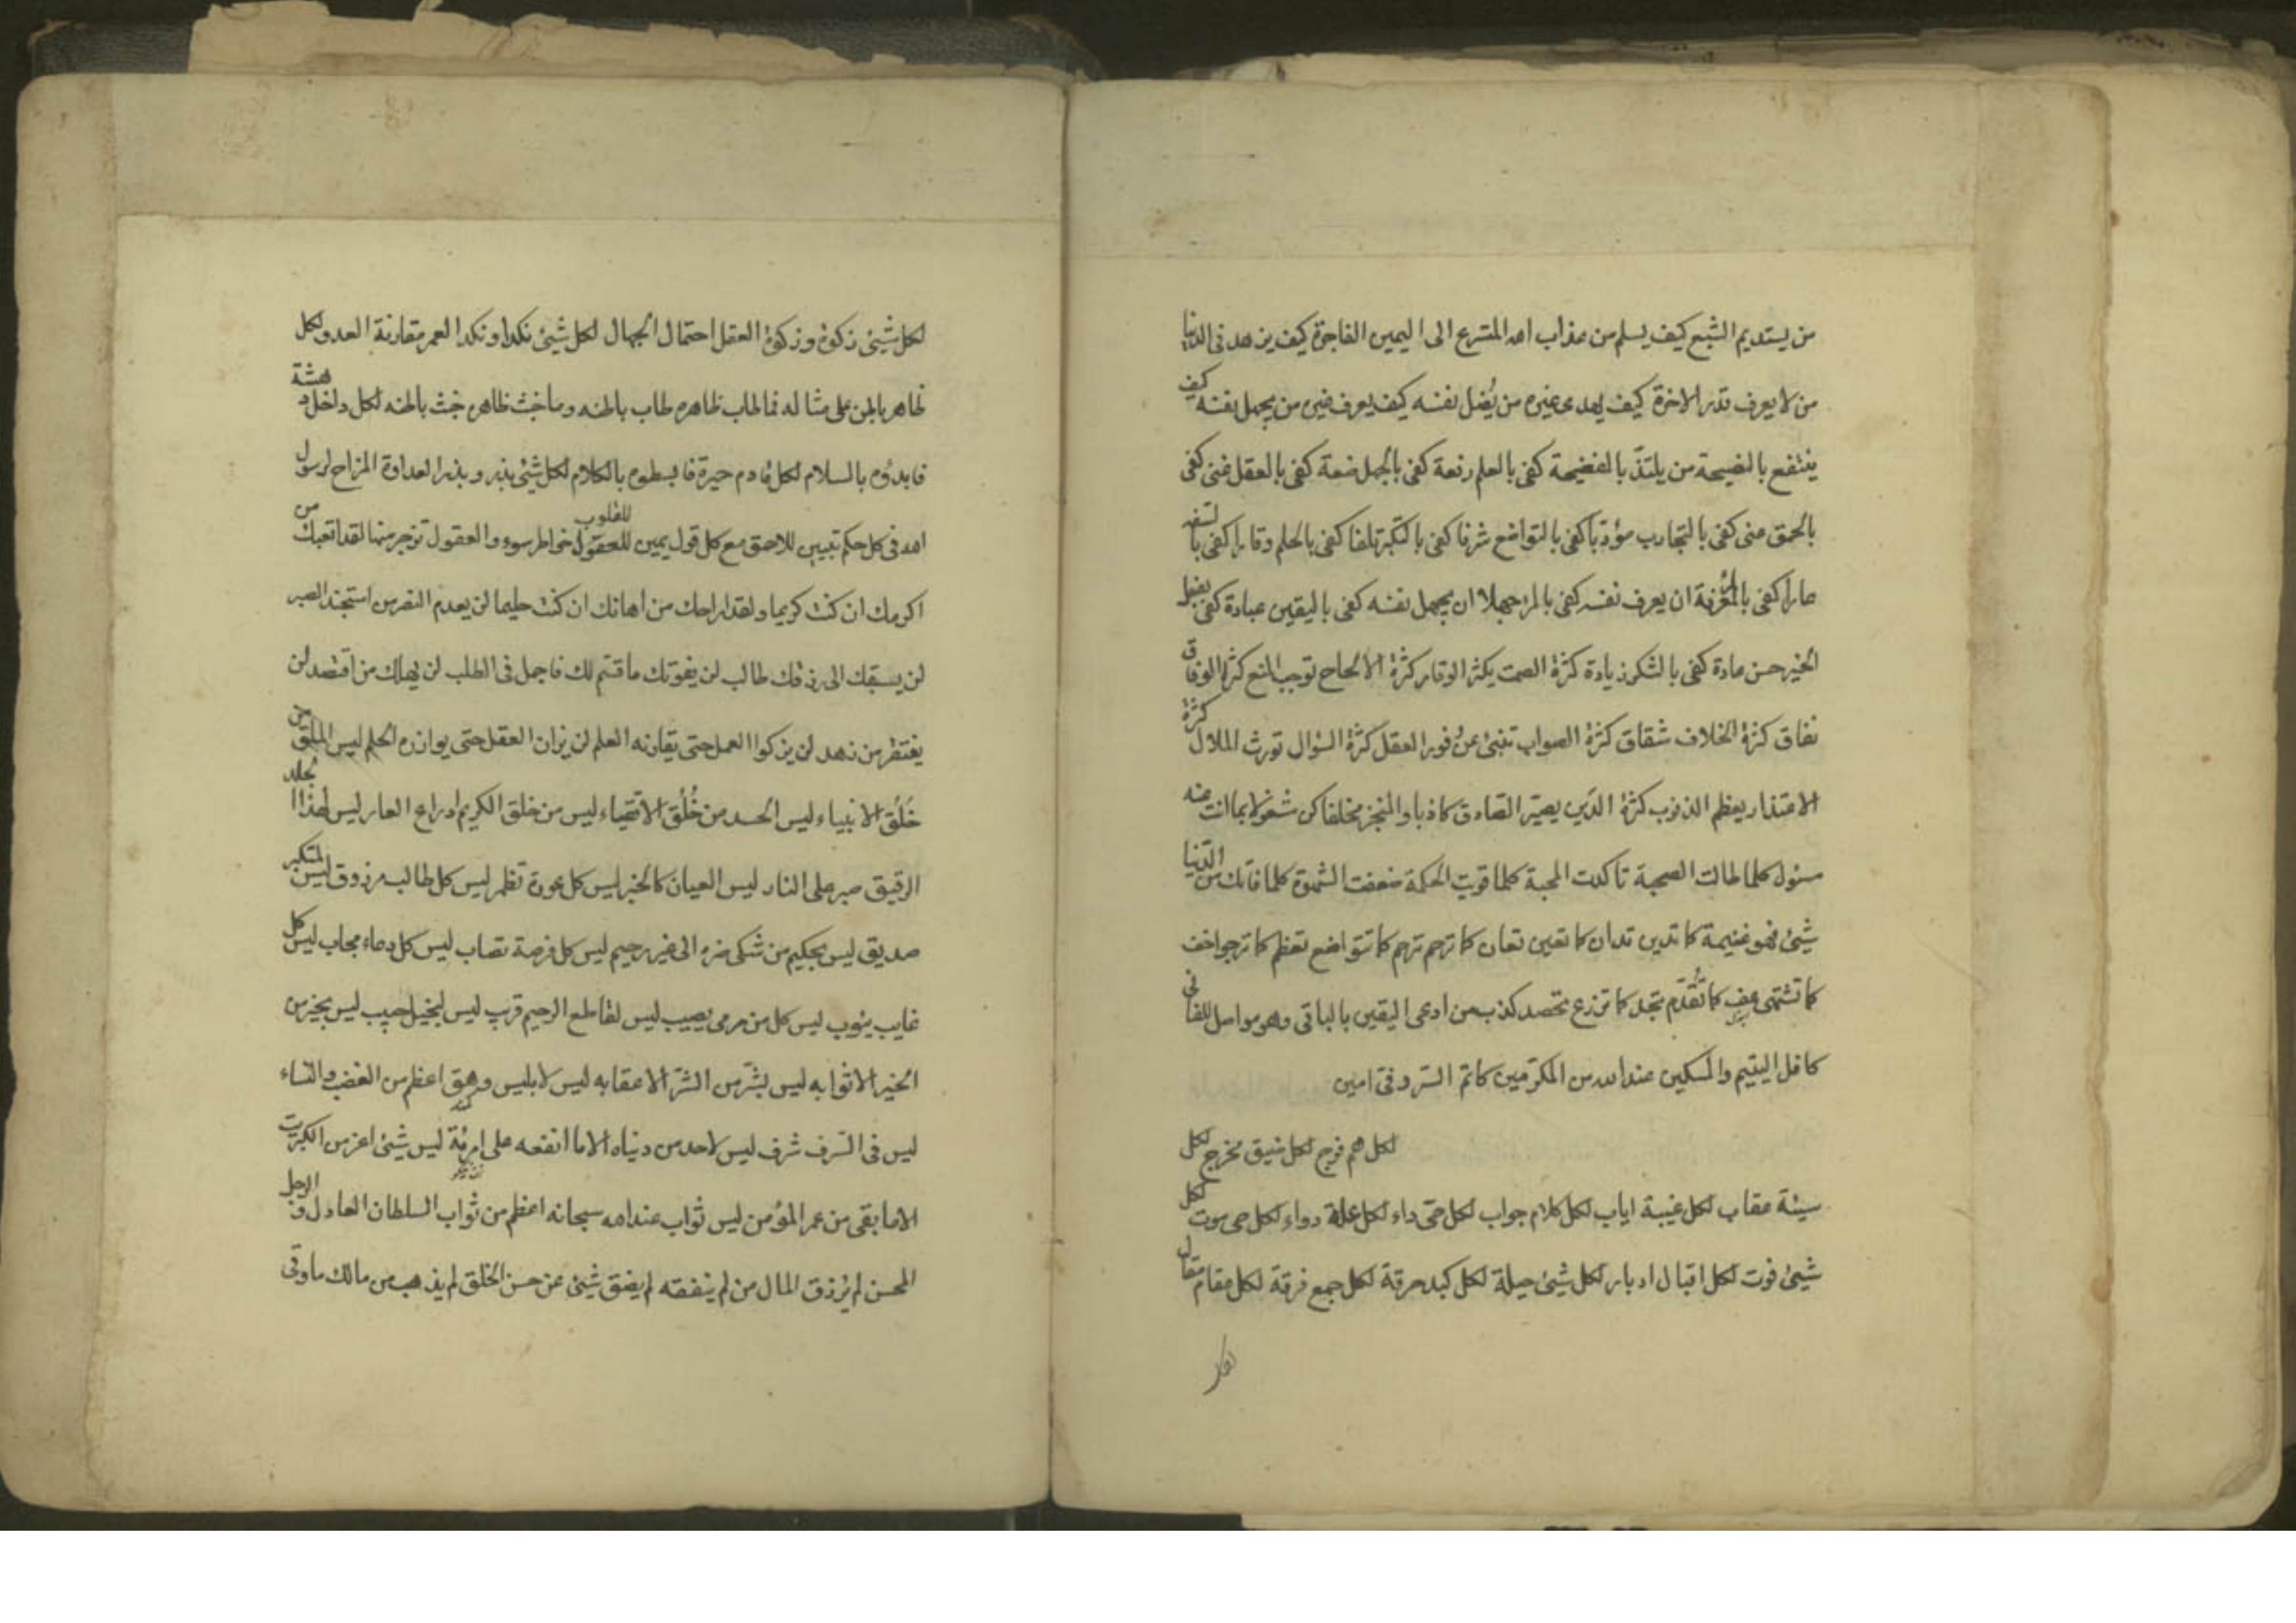 من يستديم الشبع كيف يسلم من عذاب الله المتسرع الى اليمين الفاجرة كيف يزهد فى الدنيا
من لا يعرف قدر الاخرة كيف يهدى غيره من يُضل نفسه كيف يعرف غيره من يجهل نفسه كيف
ينتفع بالنصيحة من يلتذّ بالفضيحة كفى بالعلم رفعة كفى بالجهل ضعة كفى بالعقل غنى كفى
بالحمق عنى كفى بالتجارب مؤدّبا كفى بالتواضع شرفا كفى بالتكبّر تلفا كفى بالحلم وقارا كفى بالسفه
عارا كفى بالمعرفة ان يعرف نفسه كفى بالمرء جهلا ان يجهل نفسه كفى باليقين عبادة كفى بفعل
الخير حسن عادة كفى بالشكر زيادة كثرة الصمت يكثر الوقار كثرة الالحاح توجب المنع كثرة الوفاق
نفاق كثرة الخلاف شقاق كثرة الصواب تنبئ عن وفور العقل كثرة السؤال تورث الملال كثرة
الاعتذار يعظم الذنوب كثرة الدّين يصيّر الصادق كاذبا والمنجز مخلفا كن مشغولا بما انت عنه
مسئول كلما طالت الصحبة تاكدت المحبة كلما قويت الحكمة ضعفت الشهوة كلما فاتك من الدّنيا
شيئ فهو غنيمة كما تدين تدان كما تعين تعان كما ترحم ترحم كما تتواضع تعظم كما ترجوا خف
كما تشتهى عف كما تُقدّم تجد كما تزرع تحصد كذب من ادعى اليقين بالباقى وهو مواصل للفانى
كافل اليتيم والمسكين عند الله من المكرّمين كاتم السّر وفىّ امين
لكل هم فرج لكل ضيق مخرج لكل
سيئة عقاب لكل غيبة اياب لكل كلام جواب لكل حىّ داء لكل علة دواء لكل حى موت لكل
شيئ فوت لكل اقبال ادبار لكل شيئ حيلة لكل كبد حرقة لكل جمع فرقة لكل مقام مقال
لكل
لكل شيئ زكوة وزكوة العقل احتمال الجهال لكل شيئ نكدا ونكدا العمر مقارنة العدو لكل
ظاهر باطن على مثاله فما طاب ظاهره طاب باطنه وما خبث ظاهره خبث باطنه لكل داخل دهشة
فابدؤه بالسلام لكل قادم حيرة فابسطوه بالكلام لكل شيئ بذر وبذر العداوة المزاح لرسول
الله فى كل حكم تبيين للاحمق مع كل قول يمين للعقول للقلوب خواطر سوء والعقول تزجر منها لقد اتعبك من
اكرمك ان كنت كريما ولقد اراحك من اهانك ان كنت حليما لن يعدم النصر من استنجد الصبر
لن يسبقك الى رزقك طالب لن يفوتك ما قسّم لك فاجمل فى الطلب لن يهلك من اقتصد لن
يفتقر من زهد لن يزكوا العمل حتى يقارنه العلم لن يزان العقل حتى يوازره الحلم ليس الملق من
خُلُق الانبياء ليس الحسد من خُلُق الاتقياء ليس من خلق الكريم ادراع العار ليس لهذا الجلد
الرقيق صبر على النار ليس العيان كالخبر ليس كل عورة تظهر ليس كل طالب مرزوق ليس لمتكبر
صديق ليس بحكيم من شكى ضره الى غير رحيم ليس كل فرصة تصاب ليس كل دعاء مجاب ليس كل
غايب يئوب ليس كل من رمى يصيب ليس لقاطع الرحيم قرب ليس لبخيل حبيب ليس بخير من
الخير الا ثوابه ليس بشرّ من الشرّ الا عقابه ليس لابليس وهق اعظم من الغضب والنساء
ليس فى السّرف شرف ليس لاحد من دنياه الا ما انفعه على اخرته ليس شيئ اعز من الكبريت
الا ما بقى من عمر المؤمن ليس ثواب عند الله سبحانه اعظم من ثواب السلطان العادل والرجل
المحسن لم يُرزق المال من لم ينفقه لم يضق شيئ عن حسن الخلق لم يذهب من مالك ما وقى